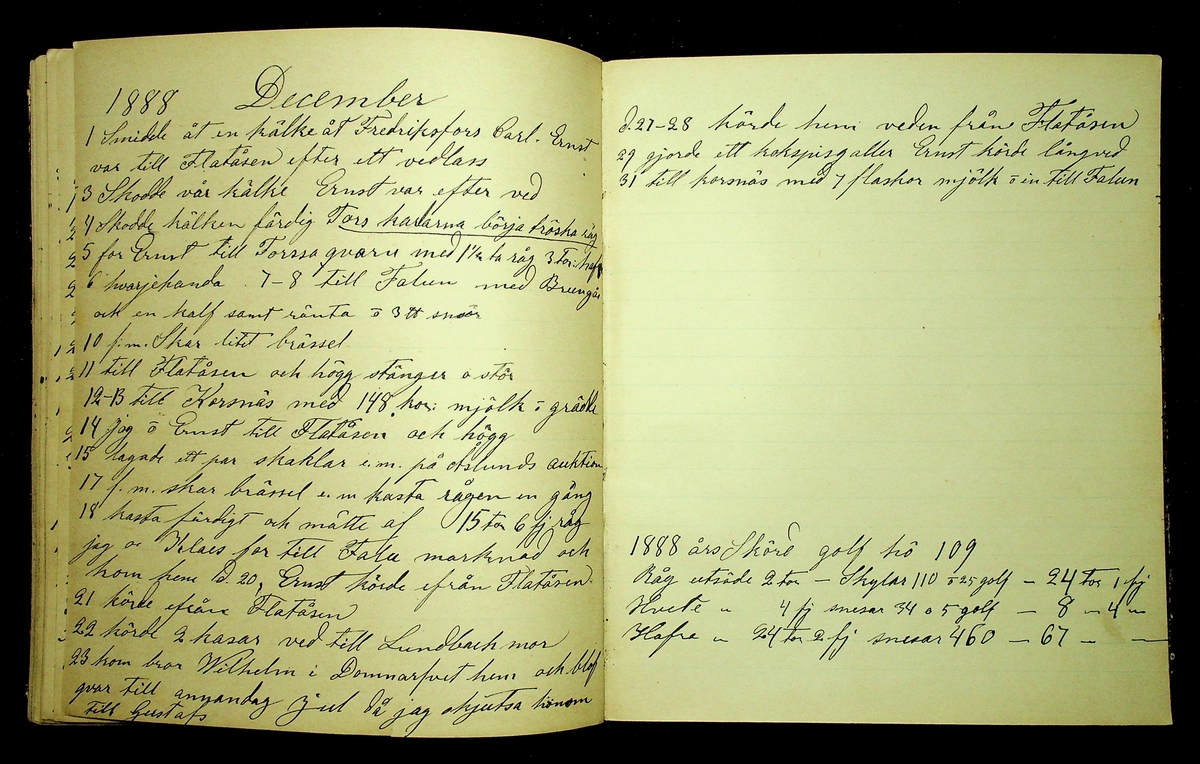 1888 December
1 Smidde åt en kälke åt Fredriksfors Carl. Ernst
var till Flatåsen efter ett vedlass
3 Skodde vår kälke Ernst var efter ved
4 Skodde kälken färdig Tors karlarna börja tröska råg
5 for Ernst till Torssoqvarn med 1½ ta råg 3 tor: hafr
6 hvarjehanda. 7-8 till Falun med
och en kalf samt ränta o 3 tt smör
10 f.m. Skar litet brässel
11 till Flatåsen och högg stänger o stör
12-13 till Korsnäs med 148 kor: mjölk o grädde
14 jag o Ernst till Flatåsen och högg
15 lagade ett par skaklar e.m. på Åslunds auktion
17 f.m. skar brässel e.m kasta rågen en gång
18 kasta färdigt och mätte af 15 tor 6 fj råg
jag o Klaes for till Falu marknad och
kom hem d. 20, Ernst körde efrån Flatåsen.
21 körde efrån Flatåsen
22 körde 2 kasar ved till Lundbäck mor
23 kom bror Wilhelm i Domnarfvet hem och blef
qvar till annandag jul då jag skjutsa honom
till Gustafs
d. 27-28 körde hem veden från Flatåsen
29 gjorde ett kokspisgaller Ernst körde långved
31 till Korsnäs med 7 flaskor mjölk o in till Falun
1888 års Skörd golf hö 109
Råg utsäde 2 tor – Skylar 110 o 25 golf – 24 tor 1 fj
Hvete " 4 fj snesar 34 o 5 golf — 8 " 4 "
Hafre " 24 tor 2 fj snesar 460 — 67 " —